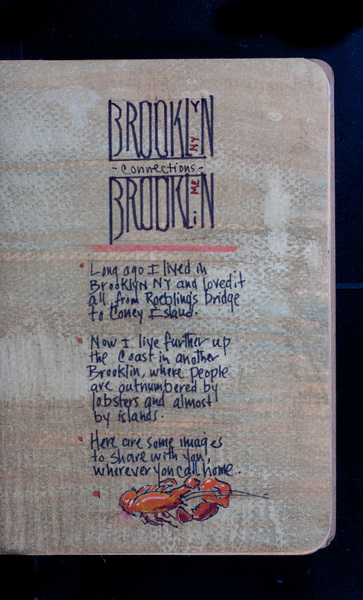 BROOKLYN
NY
-connections-
BROOKLiN
ME
Long ago I lived in
Brooklyn NY and loved it
all, from Roeblings bridge
to Coney Island.
Now I live further up
the coast in another
Brooklin, where people
are outnumbered by
lobsters and almost
by islands.
Here are some images
to share with you,
wherever you call home.